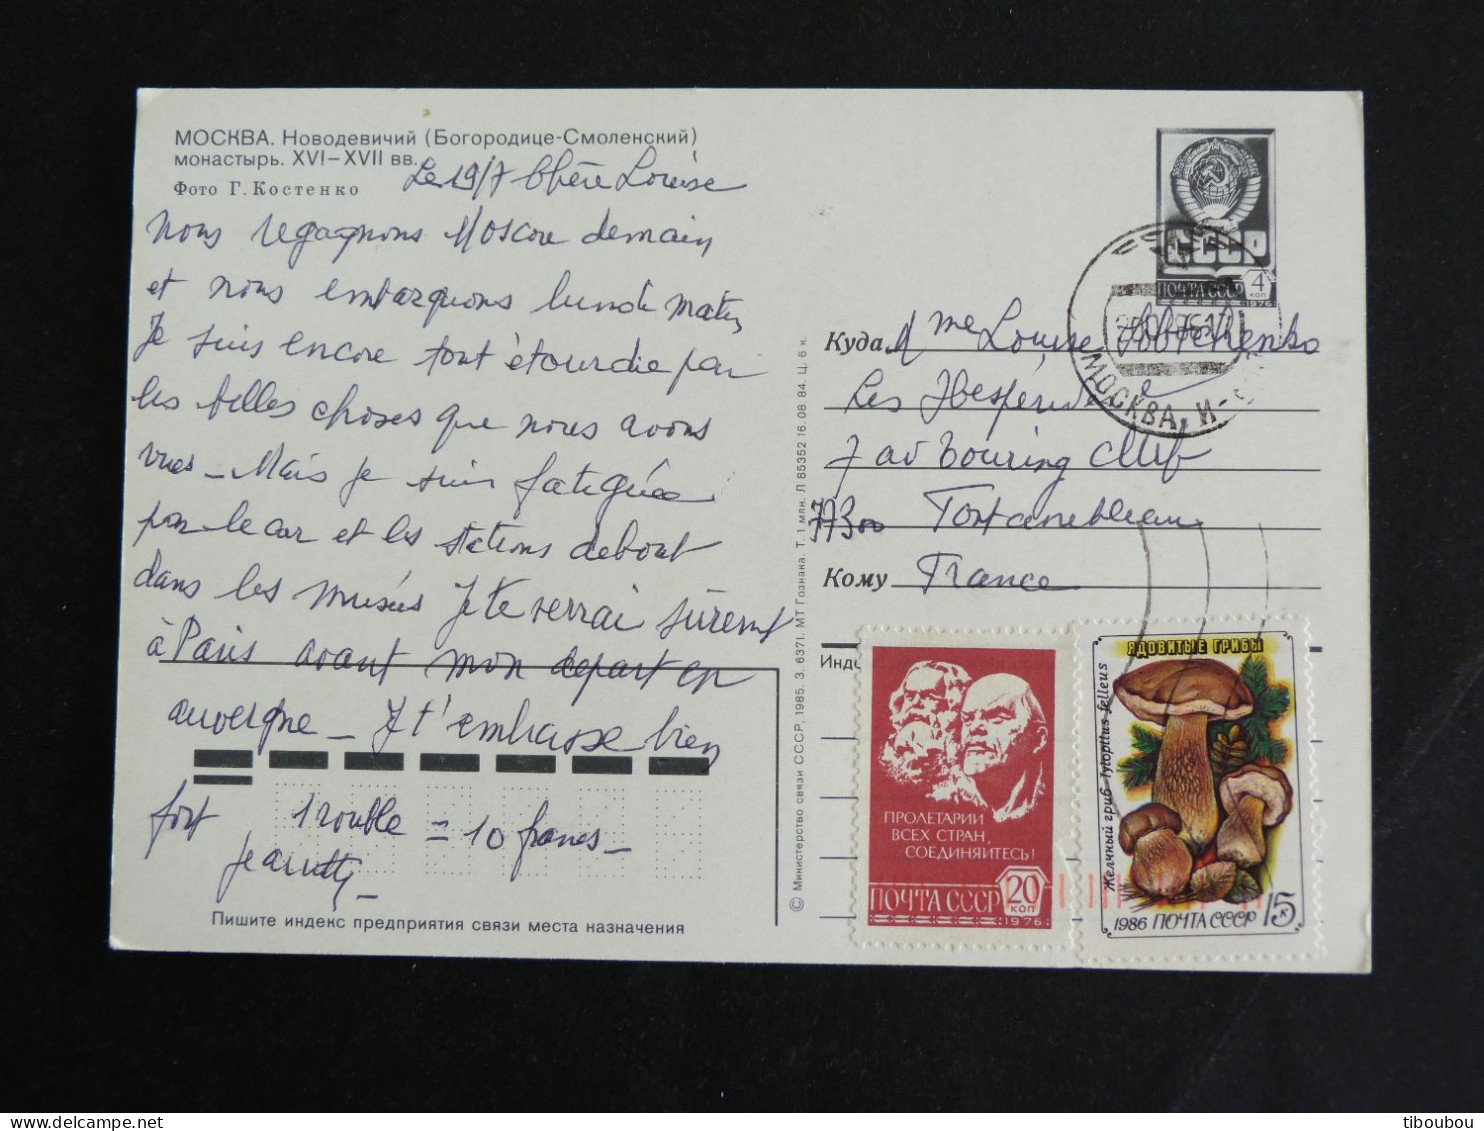 МОСКВА. Новодевичий (Богородице-Смоленский)
монастырь. XVI–XVII вв.
Фото Г. Костенко
Le 19/7 Chère Louise
nous regagnons Moscou demain
et nous embarquons lundi matin
Je suis encore tout étourdie par
les belles choses que nous avons
vues – Mais je suis fatiguée
par le car et les stations debout
dans les musées Je te verrai sûrement
à Paris avant mon départ en
auvergne – Je t'embrasse bien
fort
1 rouble = 10 francs –
Jeannette –
Пишите индекс предприятия связи места назначения
© Министерство связи СССР, 1985. З. 6371. МТ Гознака. Т. 1 млн. Л 85352 16.08.84. Ц. 6 к.
ПОЧТА СССР 4 коп
1976
МОСКВА, И-
Куда Mme Louise
Les Hespérides
7 av Touring Club
77300 Fontainebleau
Кому France
Инде
ПРОЛЕТАРИИ
ВСЕХ СТРАН,
СОЕДИНЯЙТЕСЬ!
ПОЧТА СССР 20 коп
1976
ЯДОВИТЫЕ ГРИБЫ
Желчный гриб Tylopilus felleus
1986 ПОЧТА СССР 5к
tiboubou